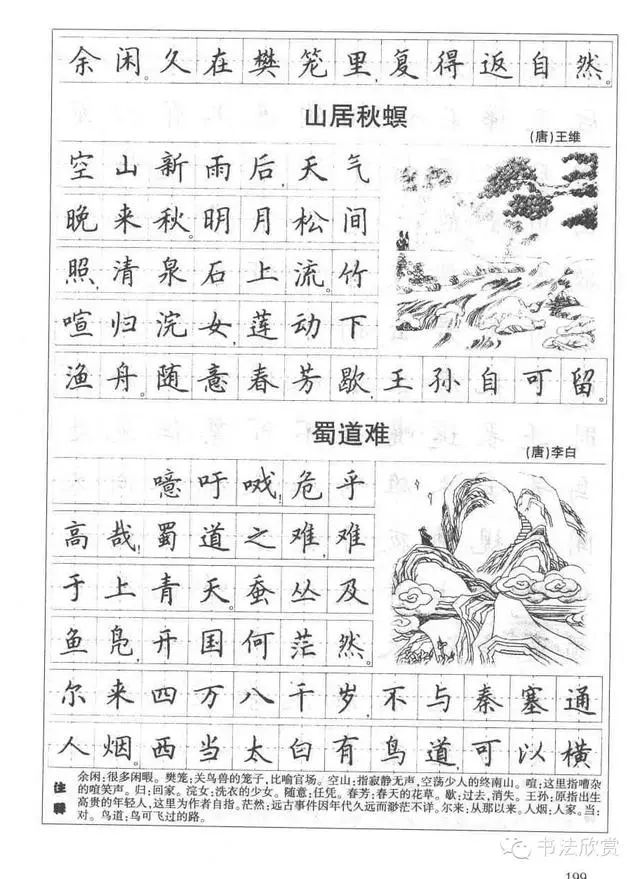 余闲。久在樊笼里,复得返自然。
山居秋螟
(唐)王维
空山新雨后,天气
晚来秋。明月松间
照,清泉石上流。竹
喧归浣女,莲动下
渔舟。随意春芳歇,王孙自可留。
蜀道难
(唐)李白
噫吁戏!危乎
高哉!蜀道之难,难
于上青天。蚕丛及
鱼凫,开国何茫然。
尔来四万八千岁,不与秦塞通
人烟。西当太白有鸟道,可以横
注释
余闲:很多闲暇。樊笼:关鸟兽的笼子,比喻官场。空山:指寂静无声,空荡少人的终南山。喧:这里指嘈杂
的喧笑声。归:回家。浣女:洗衣的少女。随意:任凭。春芳:春天的花草。歇:过去,消失。王孙:原指出生
高贵的年轻人,这里为作者自指。茫然:远古事件因年代久远而渺茫不详。尔来:从那以来。人烟:人家。当:
对。鸟道:鸟可飞过的路。
书法欣赏
199